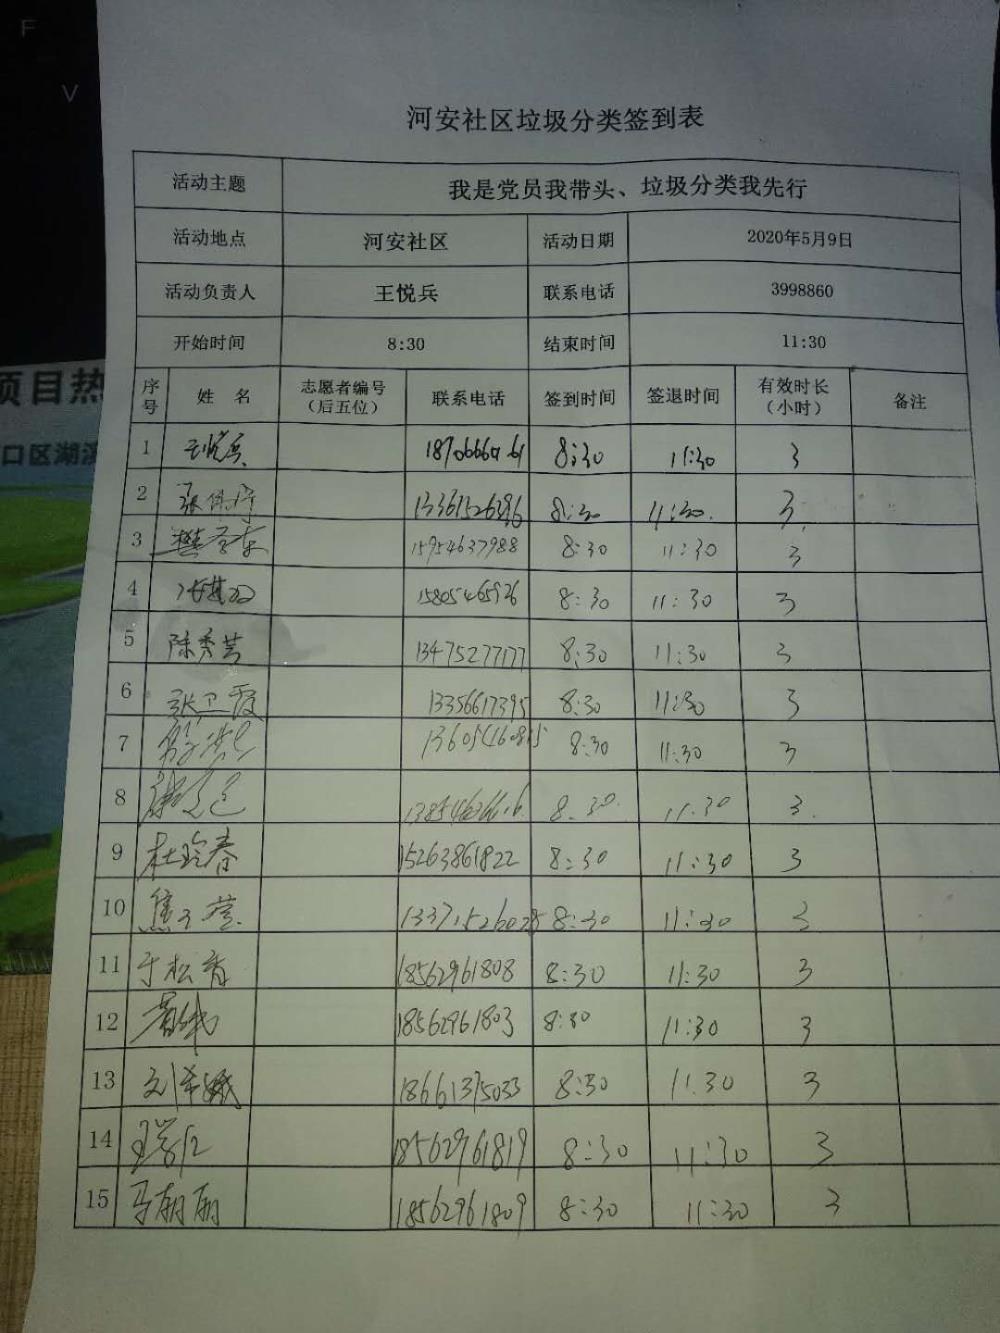 F
V
项目热
口区湖滨
河安社区垃圾分类签到表
活动主题 我是党员我带头、垃圾分类我先行
活动地点 河安社区 活动日期 2020年5月9日
活动负责人 王悦兵 联系电话 3998860
开始时间 8:30 结束时间 11:30
序号 姓 名 志愿者编号（后五位） 联系电话 签到时间 签退时间 有效时长（小时） 备注
1 王悦兵 8:30 11:30 3
2 13361526396 8:30 11:30 3
3 15954637988 8:30 11:30 3
4 15805465926 8:30 11:30 3
5 陈秀芸 13475277177 8:30 11:30 3
6 张卫霞 13356617395 8:30 11:30 3
7 8:30 11:30 3
8 8:30 11:30 3
9 杜玲春 15263861822 8:30 11:30 3
10 8:30 11:30 3
11 于松青 18562961808 8:30 11:30 3
12 18562961803 8:30 11:30 3
13 18661375033 8:30 11:30 3
14 18562961819 8:30 11:30 3
15 马朝丽 18562961809 8:30 11:30 3